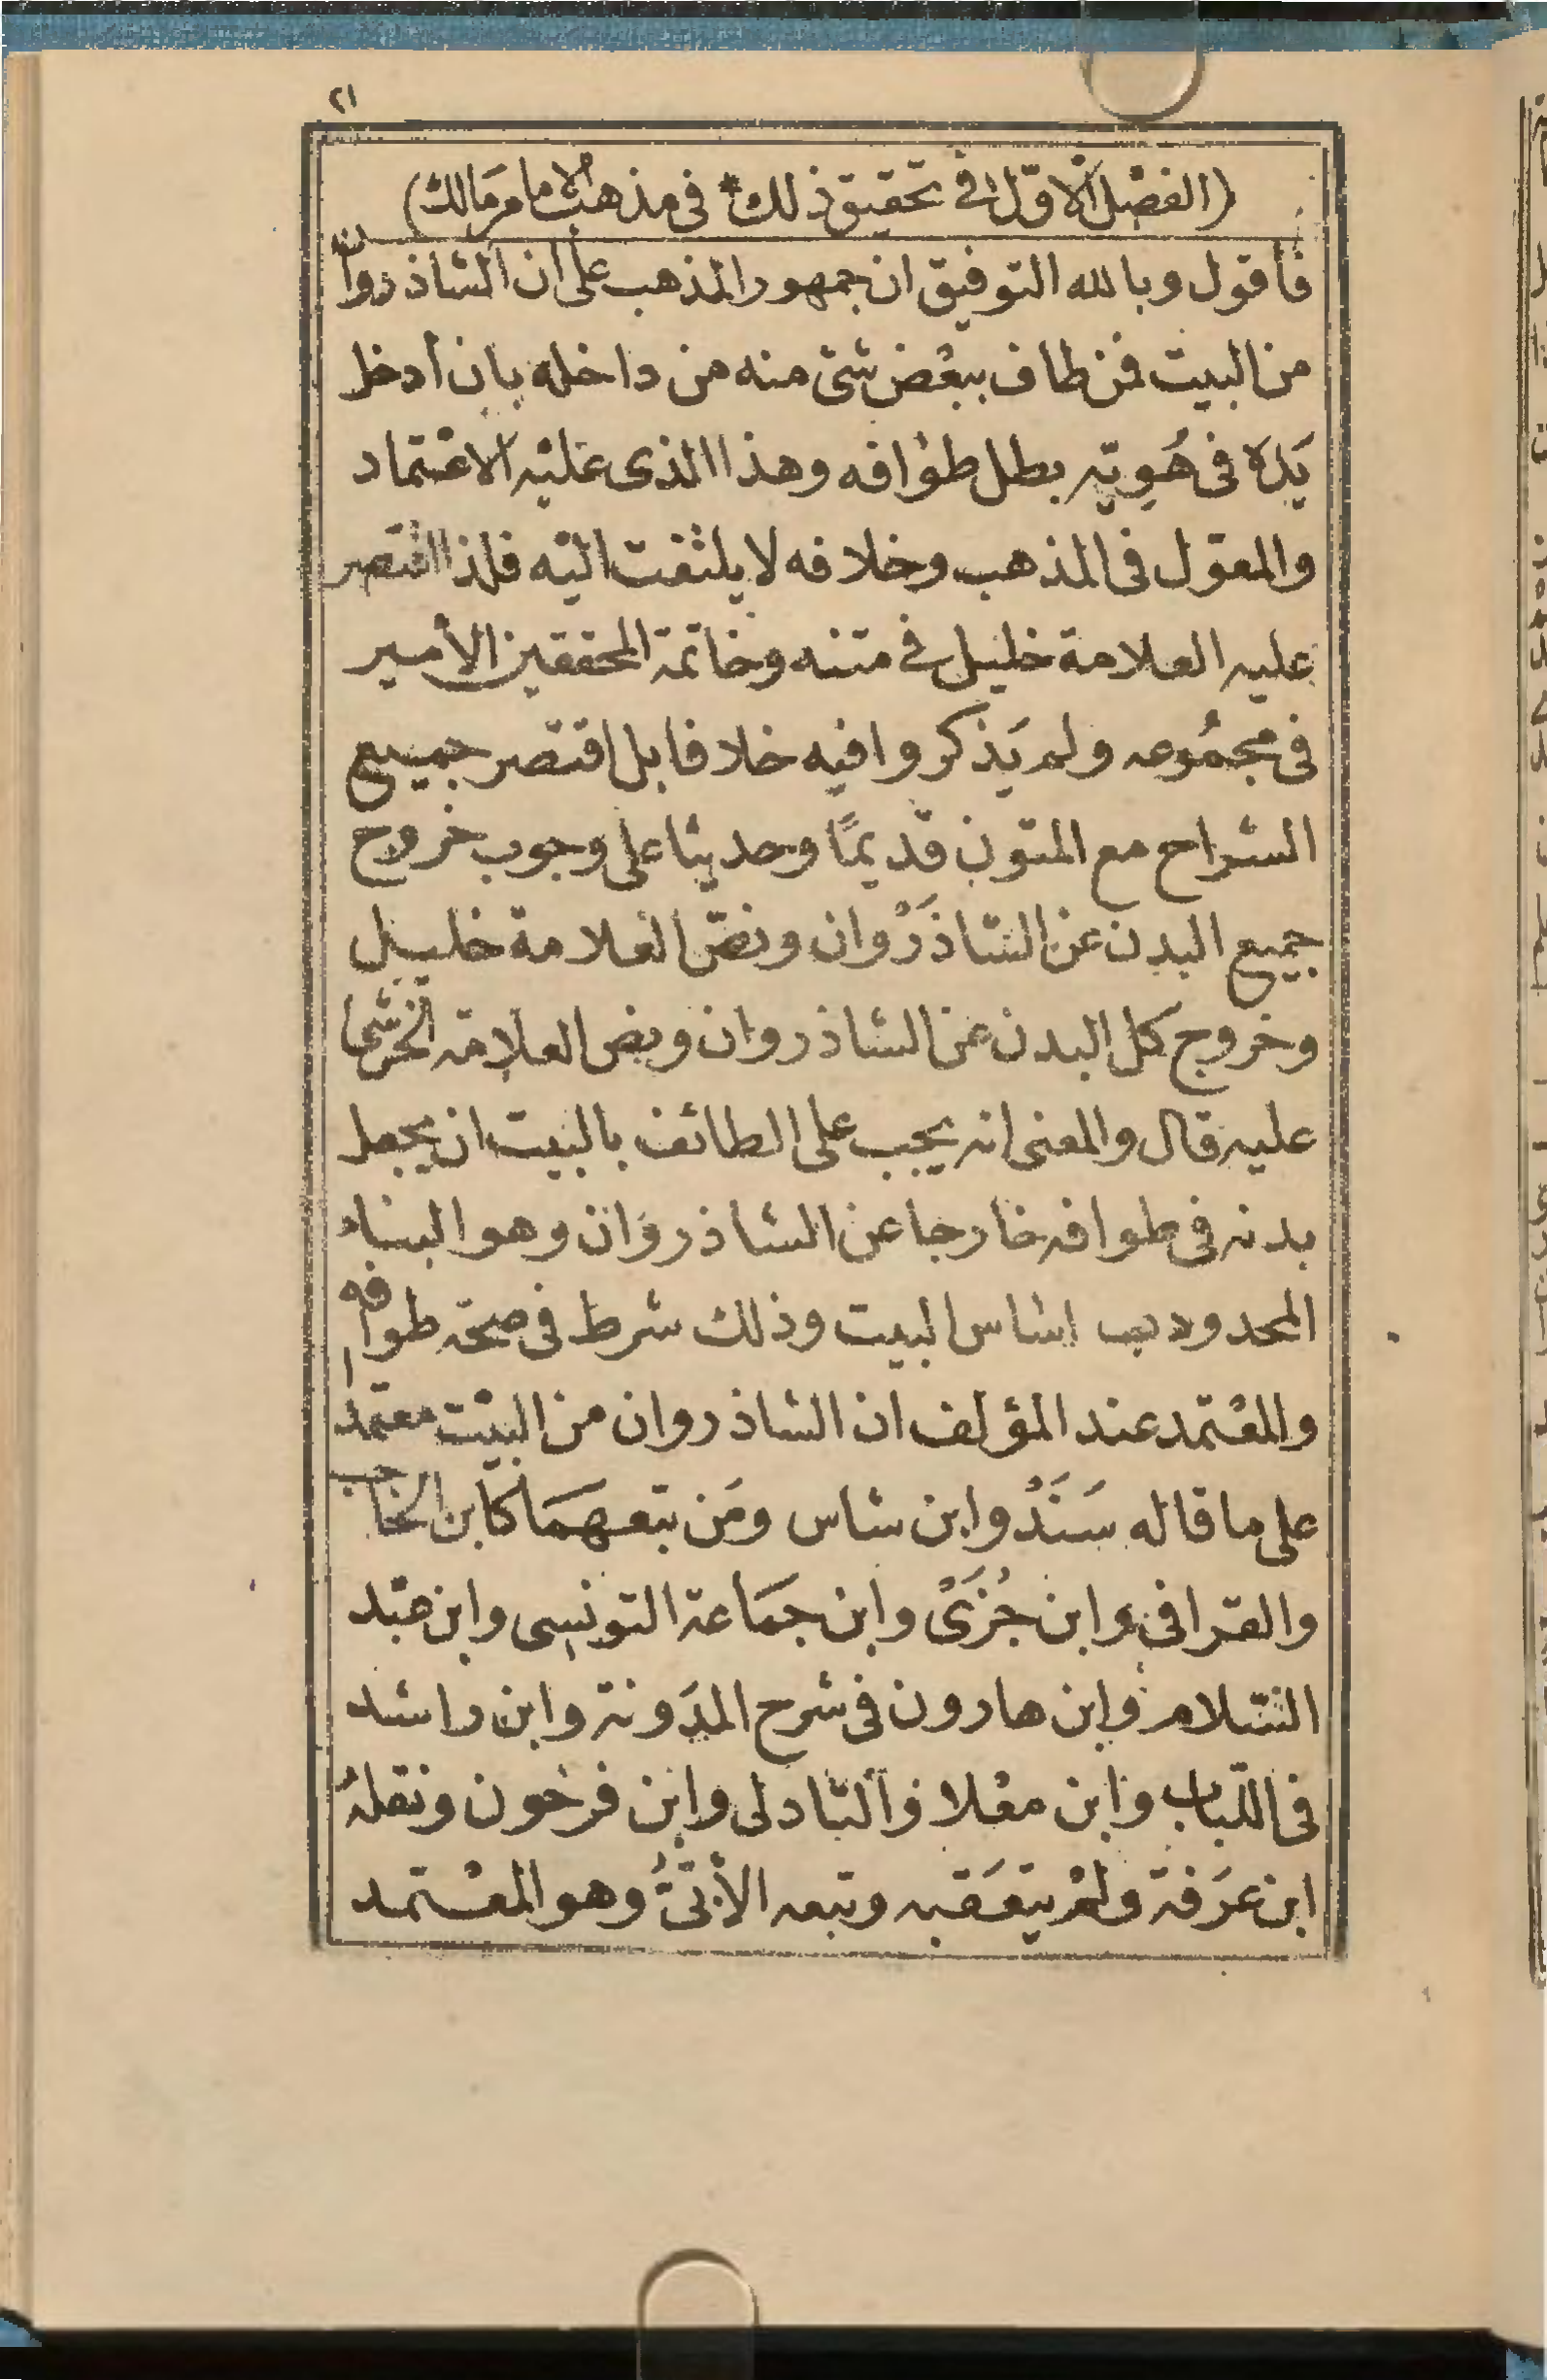 ٢١
(الفصل الاوّل فى تحقيق ذلك * فى مذهب الامام مالك)
فأقول وبالله التوفيق ان جمهور المذهب على ان الشاذروان
من البيت فمن طاف ببعض شئ منه من داخله بان أدخل
يَده فى هُويّه بطل طوافه وهذا الذى عليْه الاعتماد
والمعوّل فى المذهب وخلافه لا يلتفت اليْه فلذا اقتصر
عليه العلامة خليل فى متنه وخاتمة المحققين الأمير
فى مجمُوعه ولم يَذكروا فيه خلافا بل اقتصر جميع
الشراح مع المتون قديمًا وحديثا على وجوب خروج
جميع البدن عن الشاذَرْوان ونصّ العلامة خليل
وخروج كل البدن عن الشاذروان ونص العلامة الخرشى
عليه قال والمعنى انه يجب على الطائف بالبيت ان يجعل
بدنه فى طوافه خارجا عن الشاذروَان وهو البناء
المحدودب اساس البيت وذلك شرط فى صحّة طوافه
والمعْتمد عند المؤلف ان الشاذروان من البيْت معتمدا
على ما قاله سَنَدْ وابن شاس ومَن تبعهمَا كابن الحاجب
والقرافى وابن جُزَىْ وابن جمَاعة التونسى وابن عبْد
السّلام وابن هارون فى شرح المدَونة وابن راشد
فى اللّباب وابن معْلا والتّادلى وابن فرحون ونقلهُ
ابن عرَفة ولمْ يتعَقبه وتبعه الأبّىُّ وهو المعْتمد